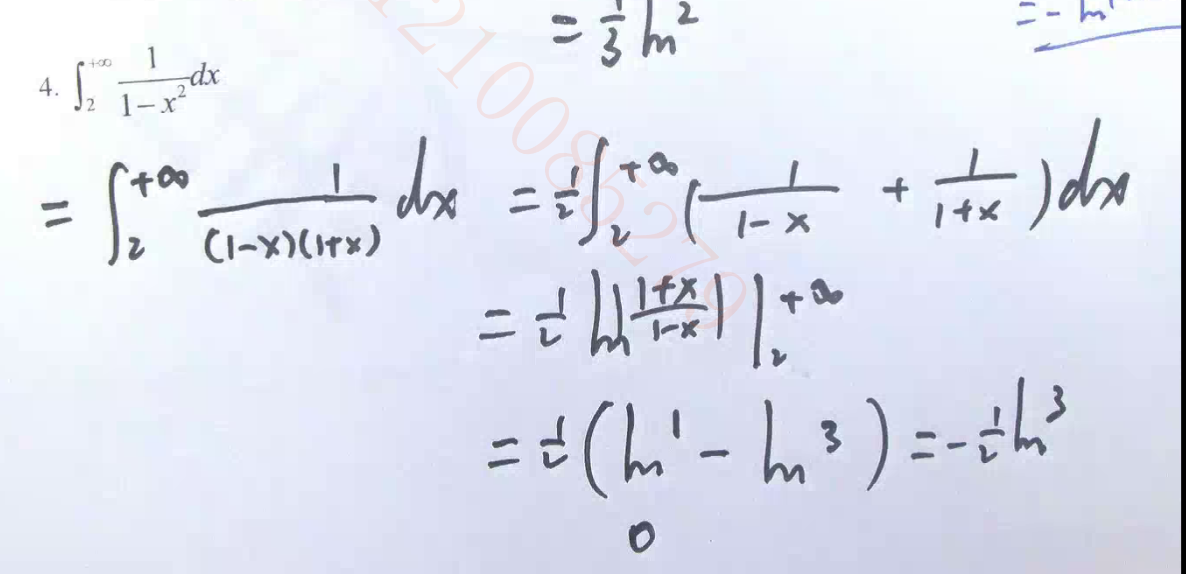 = 1/3 ln 2
4. ∫_2^{+∞} 1/(1−x²) dx
= ∫_2^{+∞} 1/((1−x)(1+x)) dx = 1/2 ∫_2^{+∞} (1/(1−x) + 1/(1+x)) dx
= 1/2 ln|(1+x)/(1−x)| |_2^{+∞}
= 1/2 (ln 1 − ln 3) = −1/2 ln 3
0